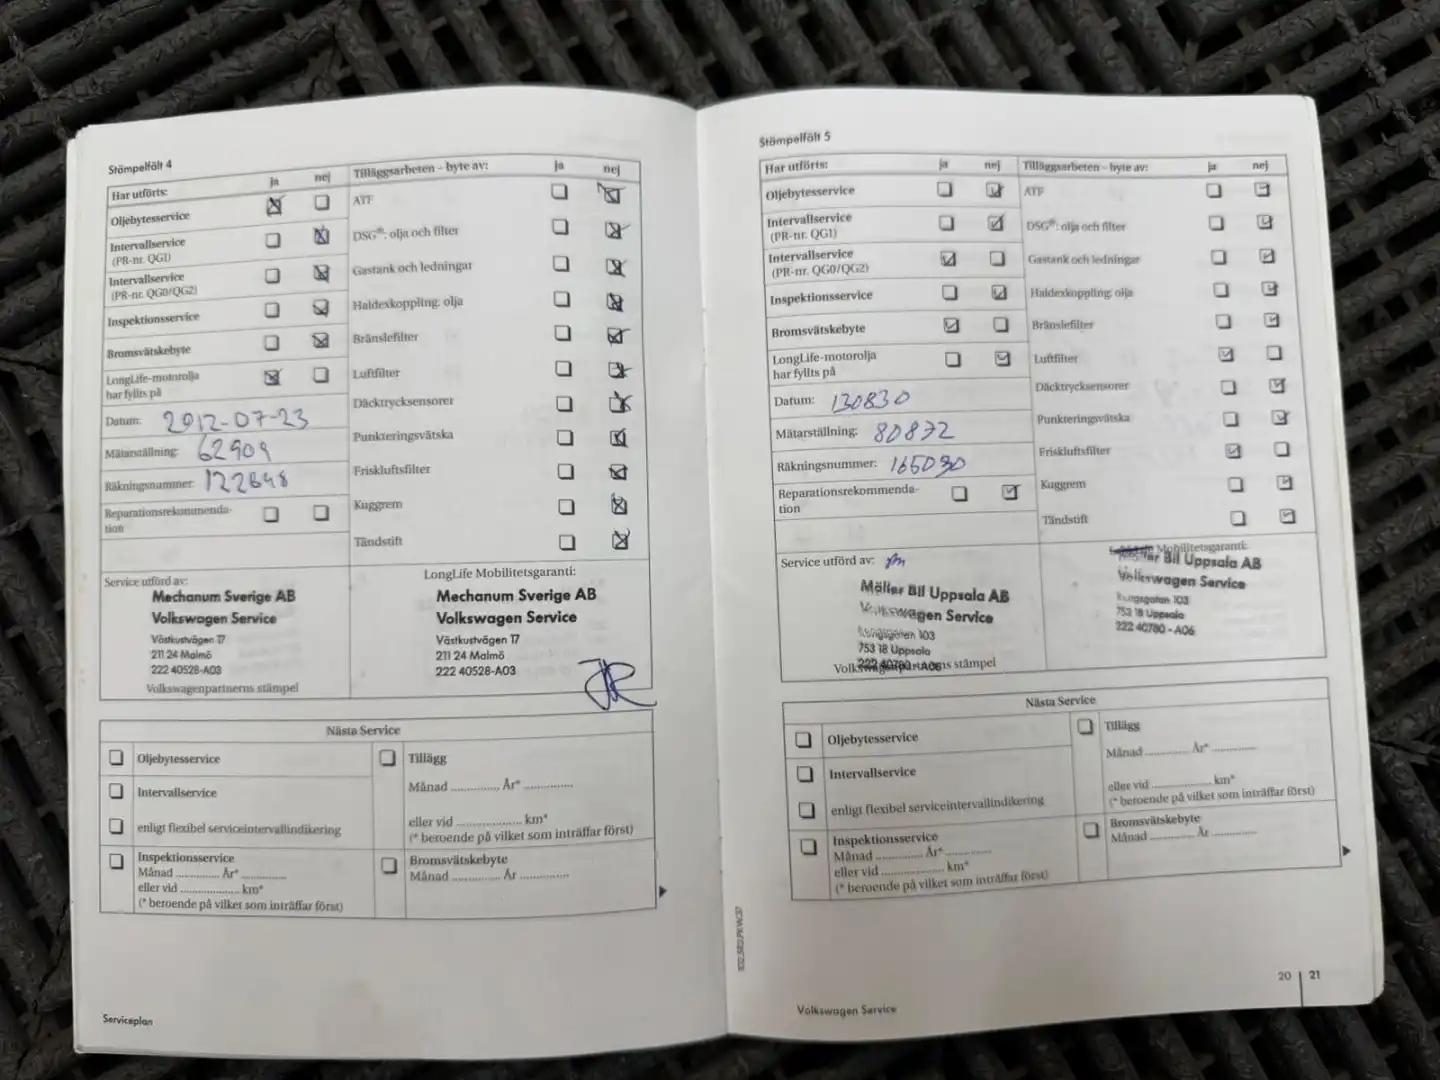 Stämpelfält 4
Har utförts: ja nej
Oljebytesservice
Intervallservice
(PR-nr. QG1)
Intervallservice
(PR-nr. QG0/QG2)
Inspektionsservice
Bromsvätskebyte
LongLife-motorolja
har fyllts på
Datum: 2012-07-23
Mätarställning: 62909
Räkningsnummer: 122848
Reparationsrekommenda-
tion
Tilläggsarbeten – byte av: ja nej
ATF
DSG®: olja och filter
Gastank och ledningar
Haldexkoppling: olja
Bränslefilter
Luftfilter
Däcktrycksensorer
Punkteringsvätska
Friskluftsfilter
Kuggrem
Tändstift
Service utförd av:
Mechanum Sverige AB
Volkswagen Service
Västkustvägen 17
211 24 Malmö
222 40528-A03
Volkswagenpartnerns stämpel
LongLife Mobilitetsgaranti:
Mechanum Sverige AB
Volkswagen Service
Västkustvägen 17
211 24 Malmö
222 40528-A03
Nästa Service
Oljebytesservice
Intervallservice
enligt flexibel serviceintervallindikering
Inspektionsservice
Månad .............. År* ..............
eller vid .................... km*
(* beroende på vilket som inträffar först)
Tillägg
Månad .............. År* ..............
eller vid .................... km*
(* beroende på vilket som inträffar först)
Bromsvätskebyte
Månad .............. År ..............
Serviceplan
Stämpelfält 5
Har utförts: ja nej
Oljebytesservice
Intervallservice
(PR-nr. QG1)
Intervallservice
(PR-nr. QG0/QG2)
Inspektionsservice
Bromsvätskebyte
LongLife-motorolja
har fyllts på
Datum: 130830
Mätarställning: 80872
Räkningsnummer: 165030
Reparationsrekommenda-
tion
Tilläggsarbeten – byte av: ja nej
ATF
DSG®: olja och filter
Gastank och ledningar
Haldexkoppling: olja
Bränslefilter
Luftfilter
Däcktrycksensorer
Punkteringsvätska
Friskluftsfilter
Kuggrem
Tändstift
Service utförd av:
Möller Bil Uppsala AB
Volkswagen Service
Kungsgatan 103
753 18 Uppsala
222 40780-A06
Volkswagenpartnerns stämpel
Mobilitetsgaranti:
Bil Uppsala AB
Volkswagen Service
Kungsgatan 103
753 18 Uppsala
222 40780-A06
Nästa Service
Oljebytesservice
Intervallservice
enligt flexibel serviceintervallindikering
Inspektionsservice
Månad .............. År* ..............
eller vid .................... km*
(* beroende på vilket som inträffar först)
Tillägg
Månad .............. År* ..............
eller vid .................... km*
(* beroende på vilket som inträffar först)
Bromsvätskebyte
Månad .............. År ..............
Volkswagen Service
20 21